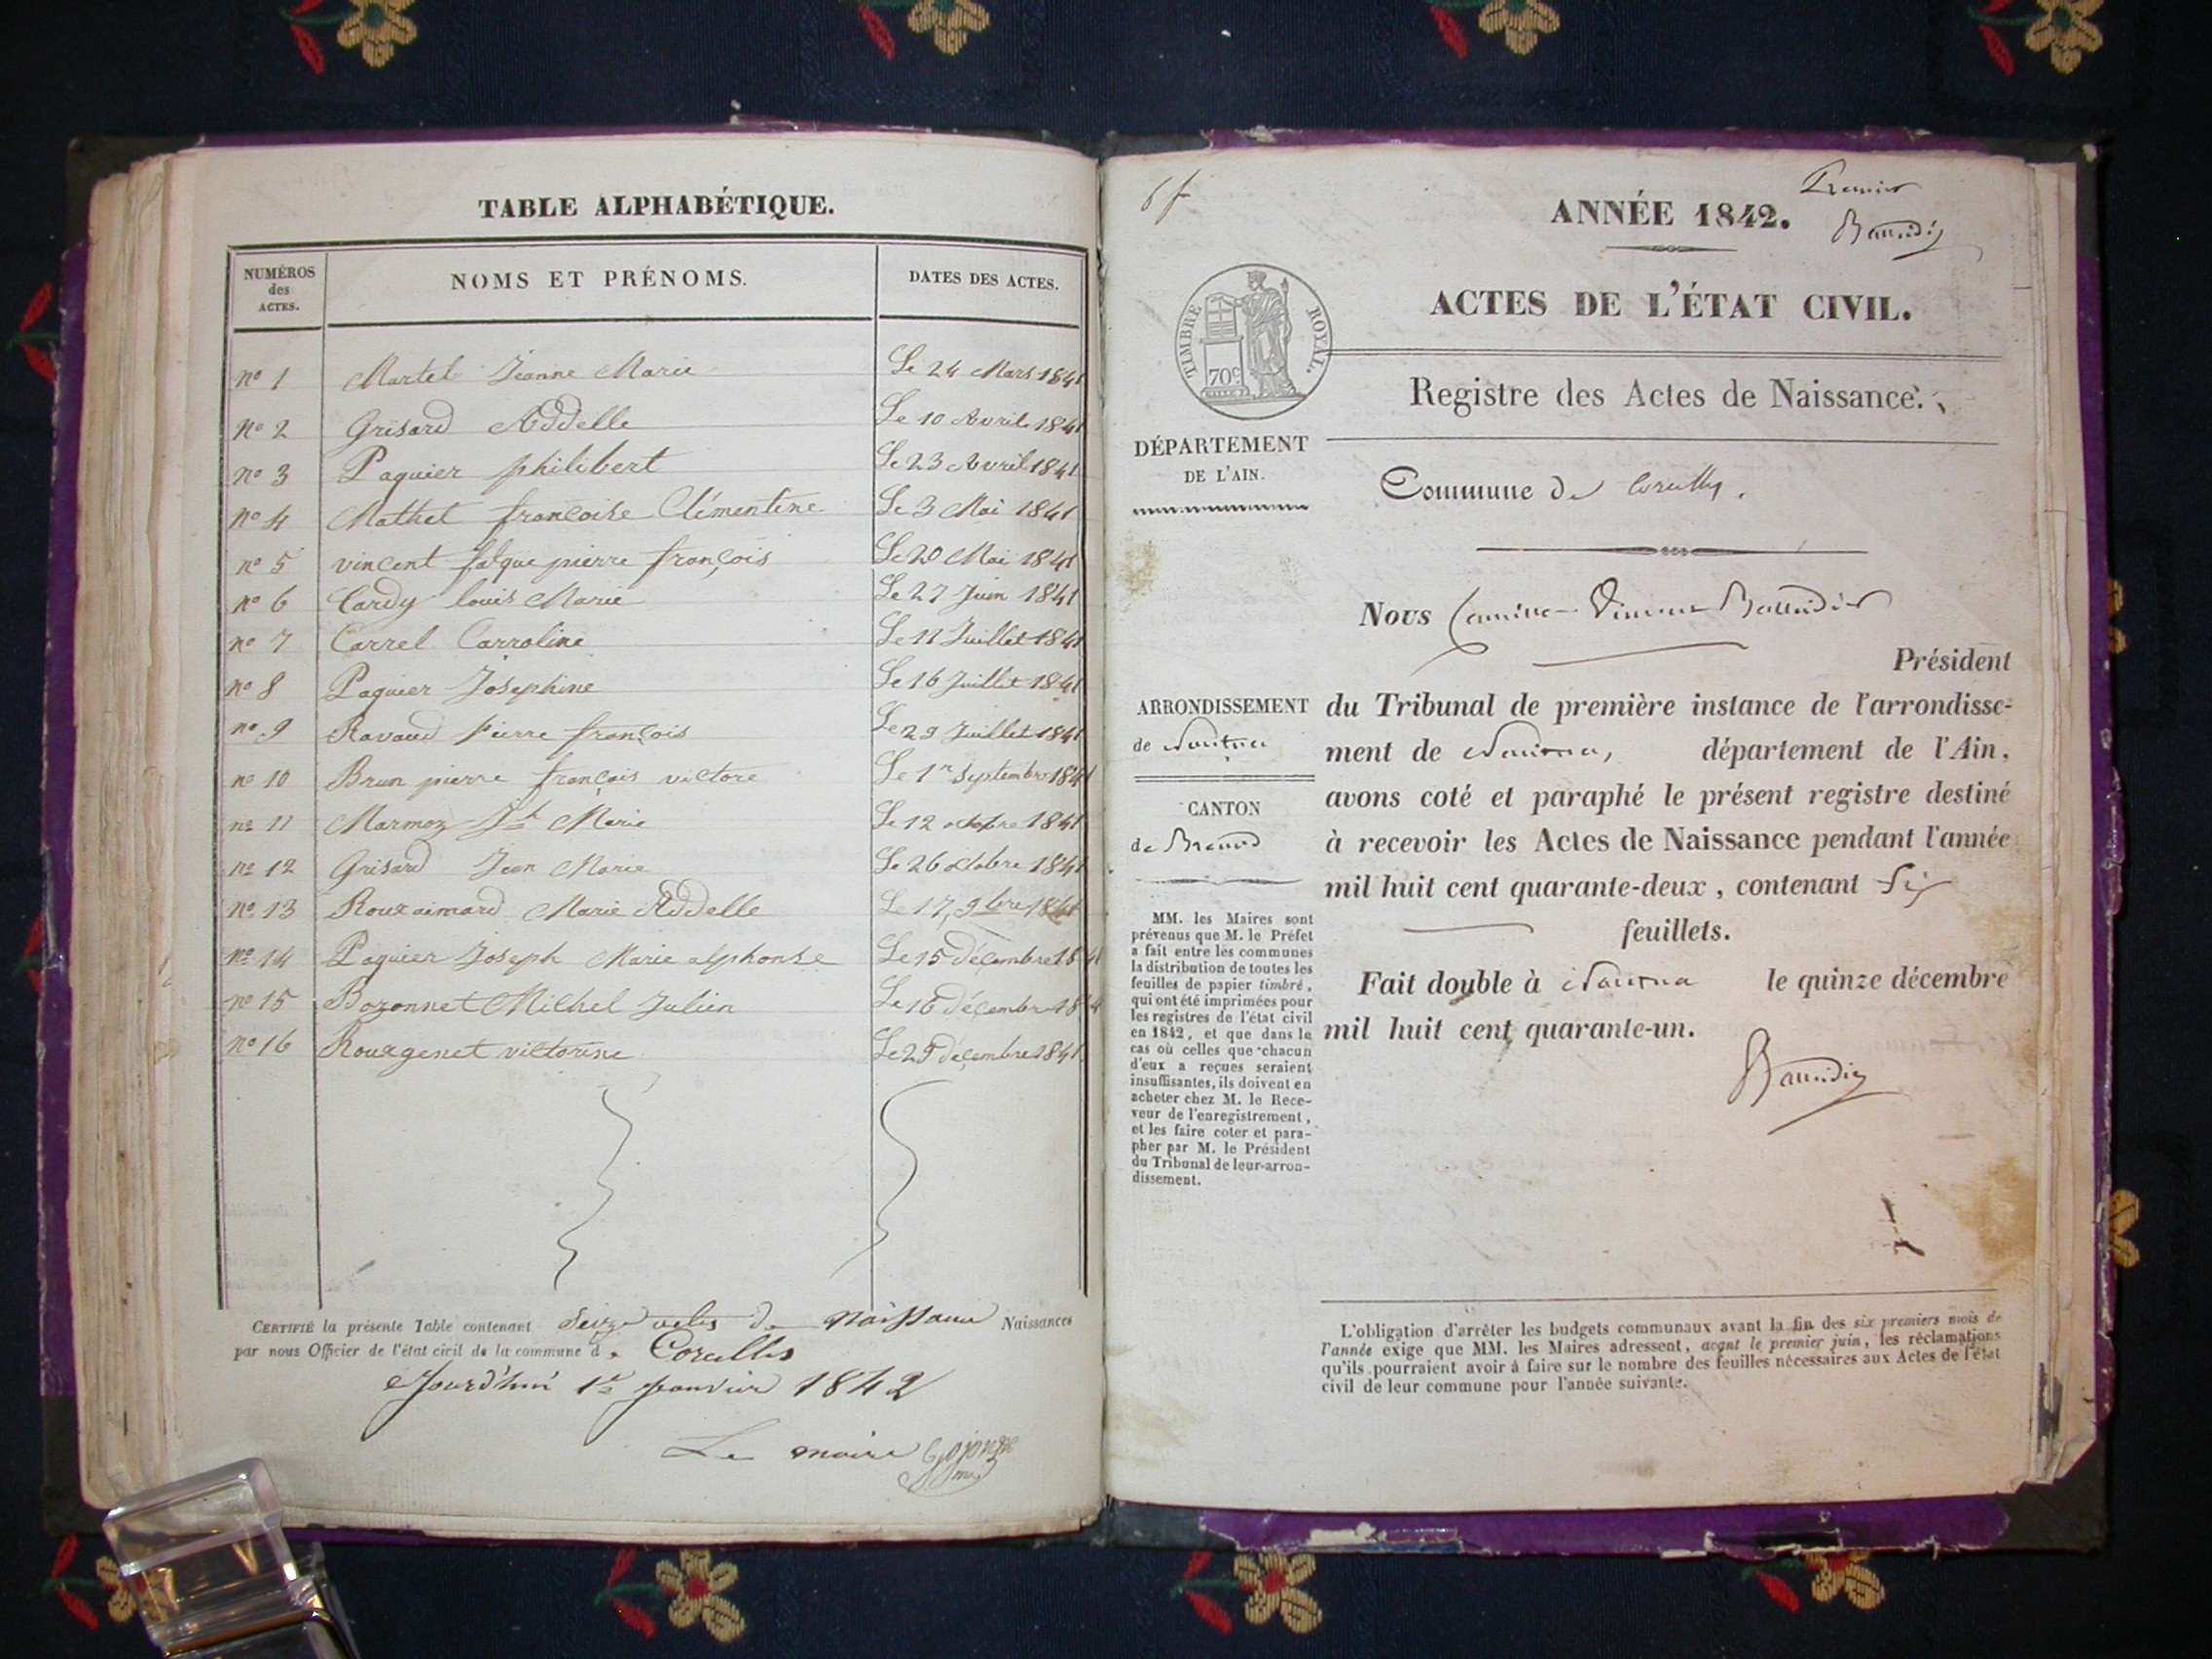 TABLE ALPHABÉTIQUE.
NUMÉROS
des
ACTES.
NOMS ET PRÉNOMS.
DATES DES ACTES.
nº 1 Martel Jeanne Marie Le 24 Mars 1841
Nº 2 Grisard Addelle Le 10 Avril 1841
nº 3 Paquier philibert Le 23 Avril 1841
nº 4 Mathet françoise Clémentine Le 3 Mai 1841
nº 5 vincent pierre françois Le 20 Mai 1841
nº 6 Cardy louis Marie Le 27 Juin 1841
nº 7 Carrel Carroline Le 11 Juillet 1841
nº 8 Paquier Josephine Le 16 Juillet 1841
nº 9 Ravaud pierre françois Le 29 Juillet 1841
nº 10 Brun pierre françois victore Le 1er Septembre 1841
nº 11 Marmoz Jh Marie Le 12 octobre 1841
nº 12 Grisard Jean Marie Le 26 octobre 1841
nº 13 Rouzaimard Marie Addelle Le 17 9bre 1841
nº 14 Paquier Joseph Marie alphonse Le 15 décembre 1841
nº 15 Bozonnet Michel Julien Le 16 décembre
nº 16 Rougenet victorine Le décembre 1841
CERTIFIÉ la présente Table contenant seize actes de naissance Naissances
par nous Officier de l'état civil de la commune d e Corcelles
Jourd'hui 1er janvier 1842
Le maire
6 f
Premier
ANNÉE 1842.
Baudin
ACTES DE L'ÉTAT CIVIL.
TIMBRE ROYAL.
70c
Registre des Actes de Naissance.
DÉPARTEMENT
DE L'AIN.
Commune de
Nous
Président
ARRONDISSEMENT
de Nantua
du Tribunal de première instance de l'arrondisse-
ment de Nantua, département de l'Ain,
avons coté et paraphé le présent registre destiné
à recevoir les Actes de Naissance pendant l'année
mil huit cent quarante-deux, contenant Six
feuillets.
CANTON
de Brenod
MM. les Maires sont
prévenus que M. le Préfet
a fait entre les communes
la distribution de toutes les
feuilles de papier timbré,
qui ont été imprimées pour
les registres de l'état civil
en 1842, et que dans le
cas où celles que chacun
d'eux a reçues seraient
insuffisantes, ils doivent en
acheter chez M. le Rece-
veur de l'enregistrement,
et les faire coter et para-
pher par M. le Président
du Tribunal de leur arron-
dissement.
Fait double à Nantua le quinze décembre
mil huit cent quarante-un.
L'obligation d'arrêter les budgets communaux avant la fin des six premiers mois de
l'année exige que MM. les Maires adressent, avant le premier juin, les réclamations
qu'ils pourraient avoir à faire sur le nombre des feuilles nécessaires aux Actes de l'état
civil de leur commune pour l'année suivante.